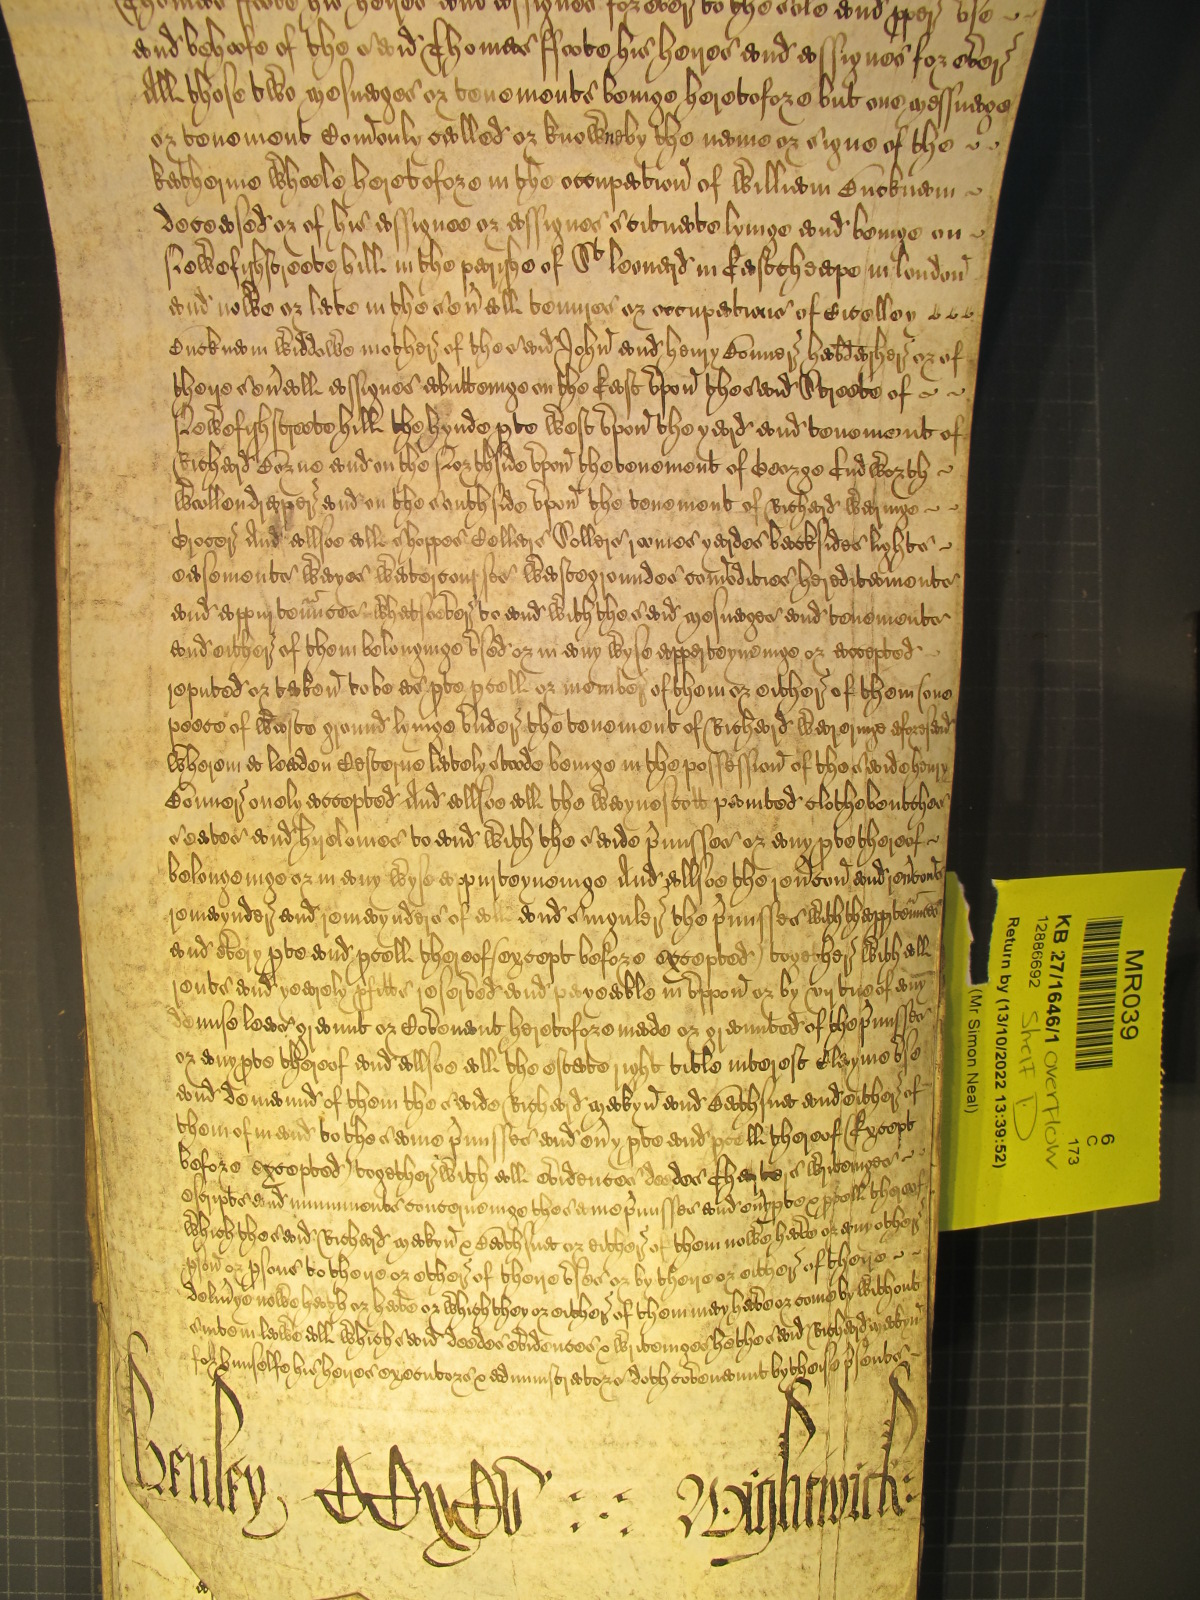 Thomas ffoote his heires and assignes for ever to the sole and pper use
and behoofe of the said Thomas ffoote his heires and assignes for ever
All those two mesuages or tenements beinge heretofore but one messuage
or tenement Comonly called or knowne by the name or signe of the
Katherine Wheele heretofore in the occupation of William Bucknam
deceased or of his assignee or assignes scituate lyinge and beinge on
Newefishstreete hill in the parishe of St Leonard in Eastcheape in London
and nowe or late in the sevall tenures or occupations of Cicelley
Bucknam Widdowe mother of the said John and Henry Conner haberdasher or of
there sevall assignes abutteinge on the East upon the said Streete of
Newefishstreete hill the hynde pte West upon the yard and tenement of
Richard Borne and on the North side upon the tenement of George Cudworth
Woollendraper and on the south side upon the tenement of Richard Waringe
Grocer And allsoe all shoppes Cellers Sollers roomes yardes backsides lights
easements wayes watercourses wastegroundes comodities hereditaments
and appurtennces whatsoever to and with the said mesuages and tenements
and either of them belonginge used or in any wyse apperteyneinge or accepted
reputed or taken to be as pte pcell or member of them or either of them (one
peece of waste ground lyinge under the tenement of Richard Wareringe aforesaid
wherein a leaden Cesterne lately stoode beinge in the possession of the saide Henry
Conner onely excepted And allsoe all the waynescott painted clothe benches
seates and hirelomes to and with the saide pmisses or any pte thereof
belongeinge or in any wyse appurteyneinge And allsoe the revcon and revcons
remaynder and remaynders of all and singuler the pmisses with thapptennces
and every pte and pcell thereof (except before excepted) together with all
rents and yearely pfitts reserved and payeable in uppon or by virtue of any
demise lease graunt or Covenant heretofore made or graunted of the pmisses
or any pte thereof and allsoe all the estate right title interest Clayme use
and demaund of them the saide Richard Makyn and and either of
them of in and to the same pmisses and evy pte and pcell thereof (Except
before excepted) together with all evidences deedes Charters writeinges
escripts and muniments concerneinge the same pmisses and evy pte & pcell thereof
which the said Richard Makyn & or either of them nowe have or any other
pson or psons to there or either of there uses or by there or either of there
delivye nowe hath or have or which they or either of them may have or come by without
suite in lawe all which said deedes evidences & writeinges he the said Richard Makyn
for himselfe his heires executors & administrators doth covenaunt by theise psents
Henley Wightwick
MR039
KB 27/1646/1 overflow
12886692 Shelf D
Return by (13/10/2022 13:39:52)
(Mr Simon Neal)
6
C
173